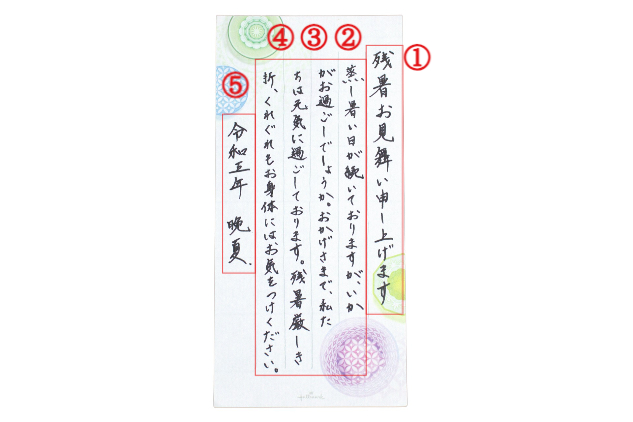 ①
残暑お見舞い申し上げます
②
③
④
蒸し暑い日が続いておりますが、いか
がお過ごしでしょうか。おかげさまで、私た
ちは元気に過ごしております。残暑厳しき
折、くれぐれもお身体にはお気をつけください。
⑤
令和五年 晩夏